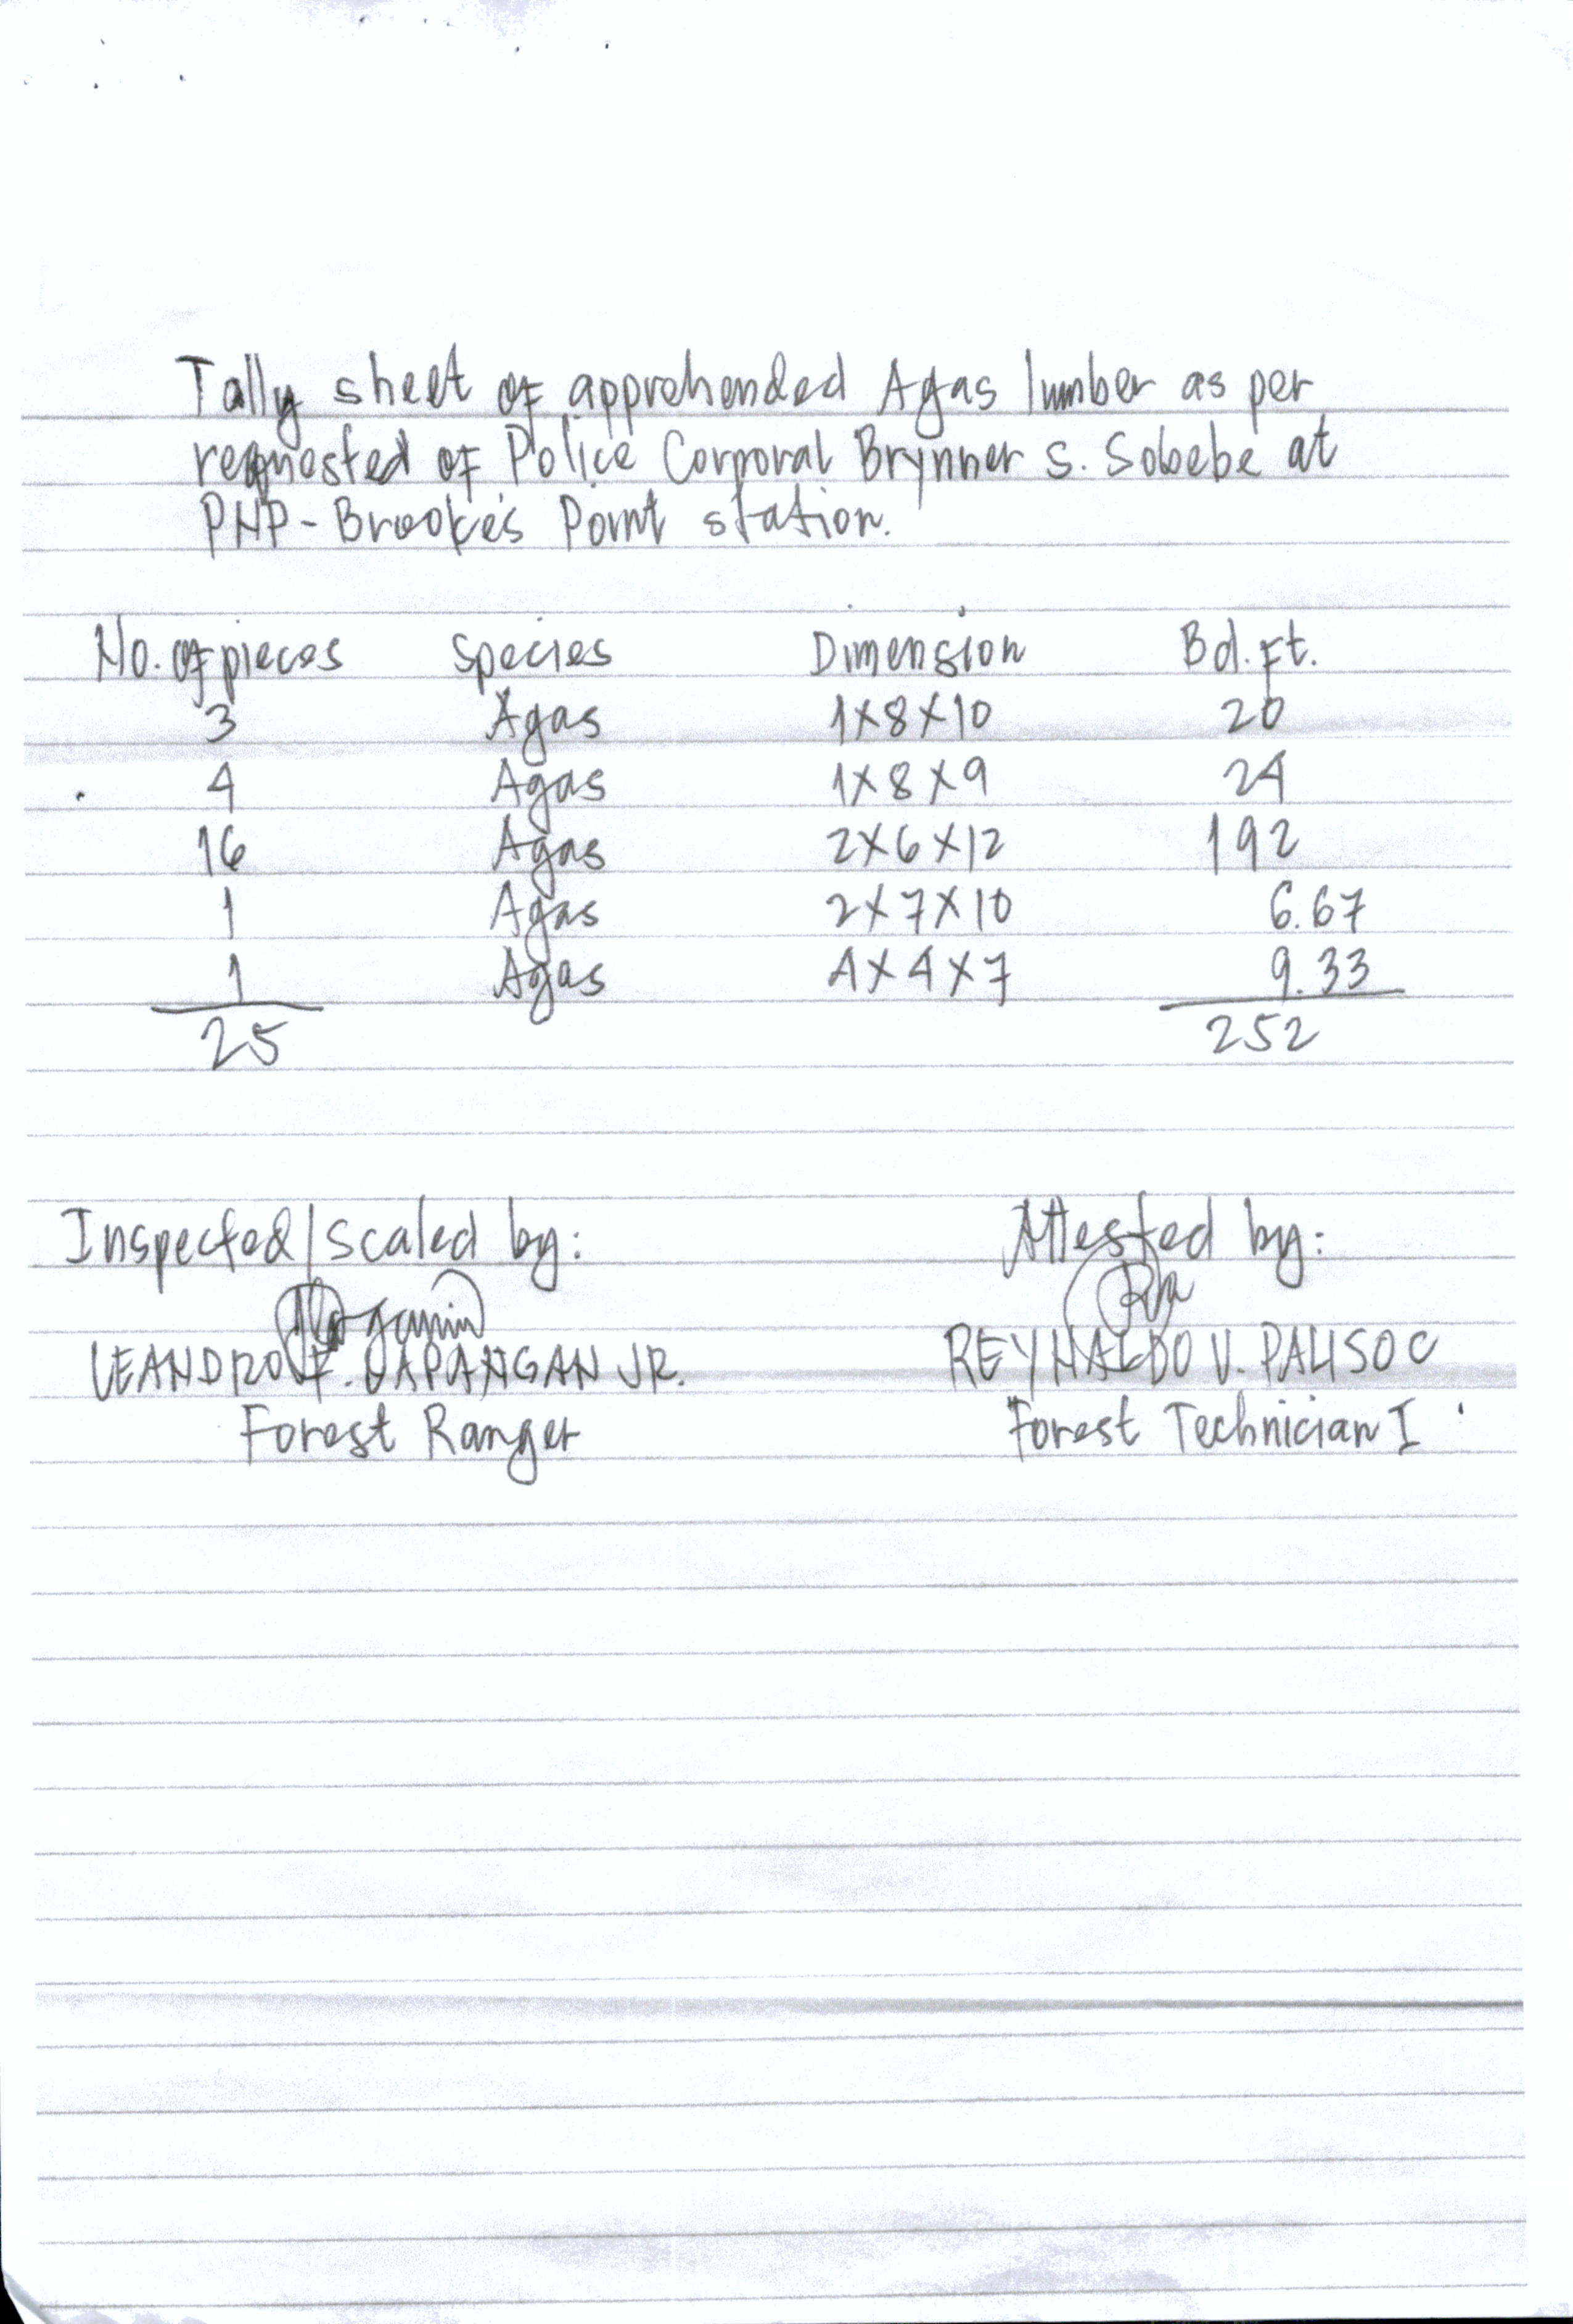 Tally sheet of apprehended Agas lumber as per
requested of Police Corporal Brynner S. Sobebe at
PNP-Brooke's Point station.
No. of pieces Species Dimension Bd.Ft.
3 Agas 1x8x10 20
4 Agas 1x8x9 24
16 Agas 2x6x12 192
1 Agas 2x7x10 6.67
1 Agas 4x4x7 9.33
25 252
Inspected/scaled by: Attested by:
LEANDRO JR. REYNALDO V. PALISOC
Forest Ranger Forest Technician I